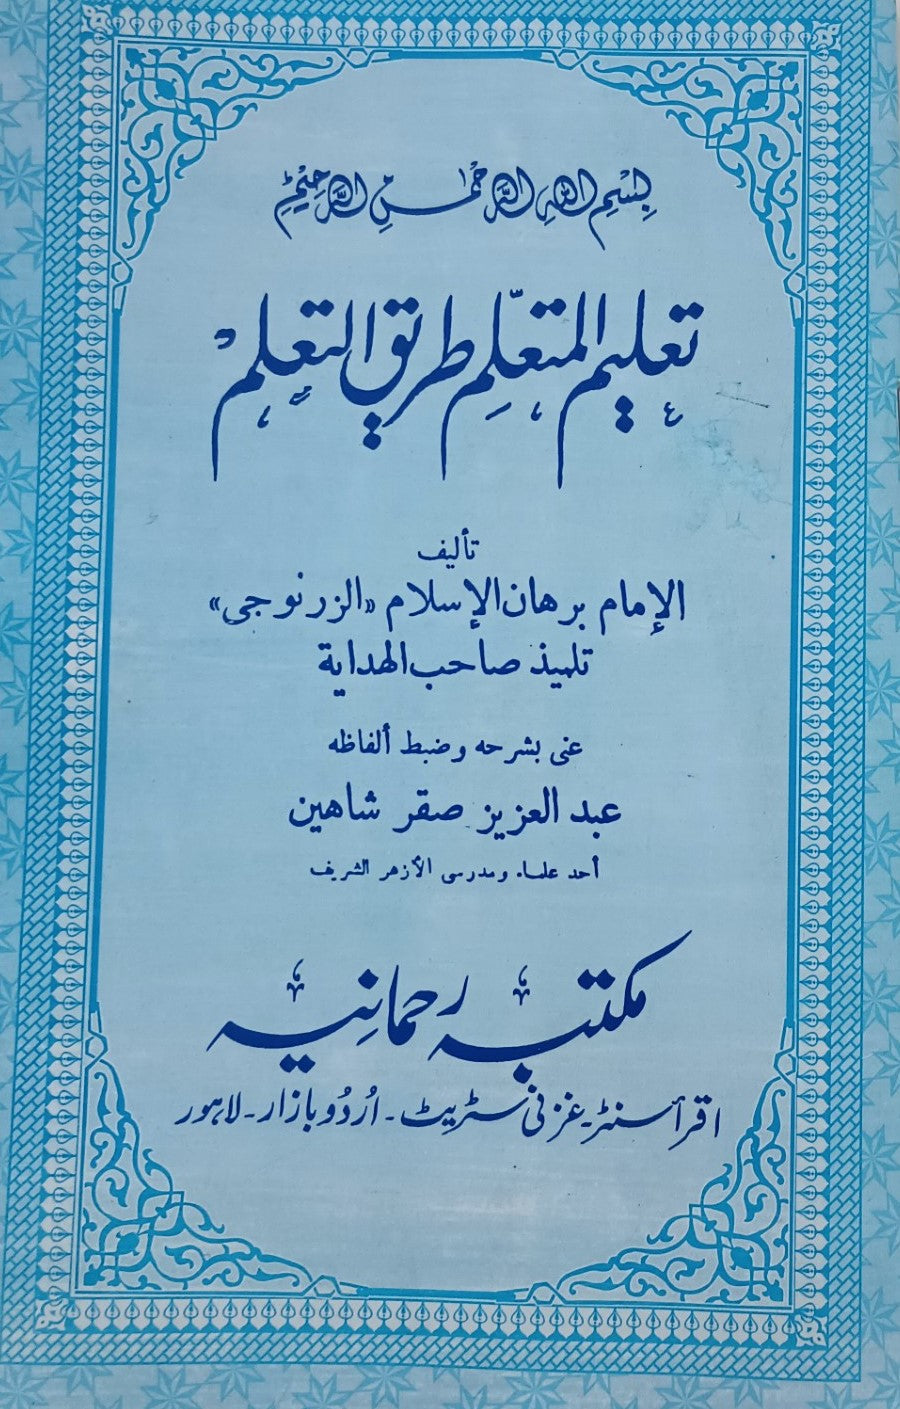 بِسْمِ اللهِ الرَّحْمٰنِ الرَّحِيْمِ
تعليم المتعلّم طريق التعلم
تأليف
الإمام برهان الإسلام «الزرنوجى»
تلميذ صاحب الهداية
عنى بشرحه وضبط ألفاظه
عبد العزيز صقر شاهين
أحد علماء ومدرسى الأزهر الشريف
مکتبہ رحمانیہ
اقرأ سنٹر۔ غزنی سٹریٹ۔ اُردُو بازار۔ لاہور